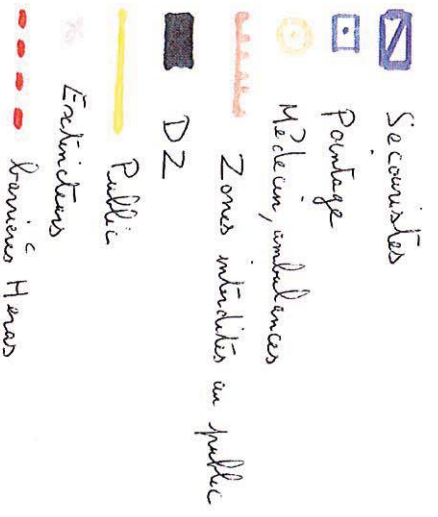 Secouristes
Pointage
Médecin, ambulances
Zones interdites au public
DZ
Public
Extincteurs
barrières Heras